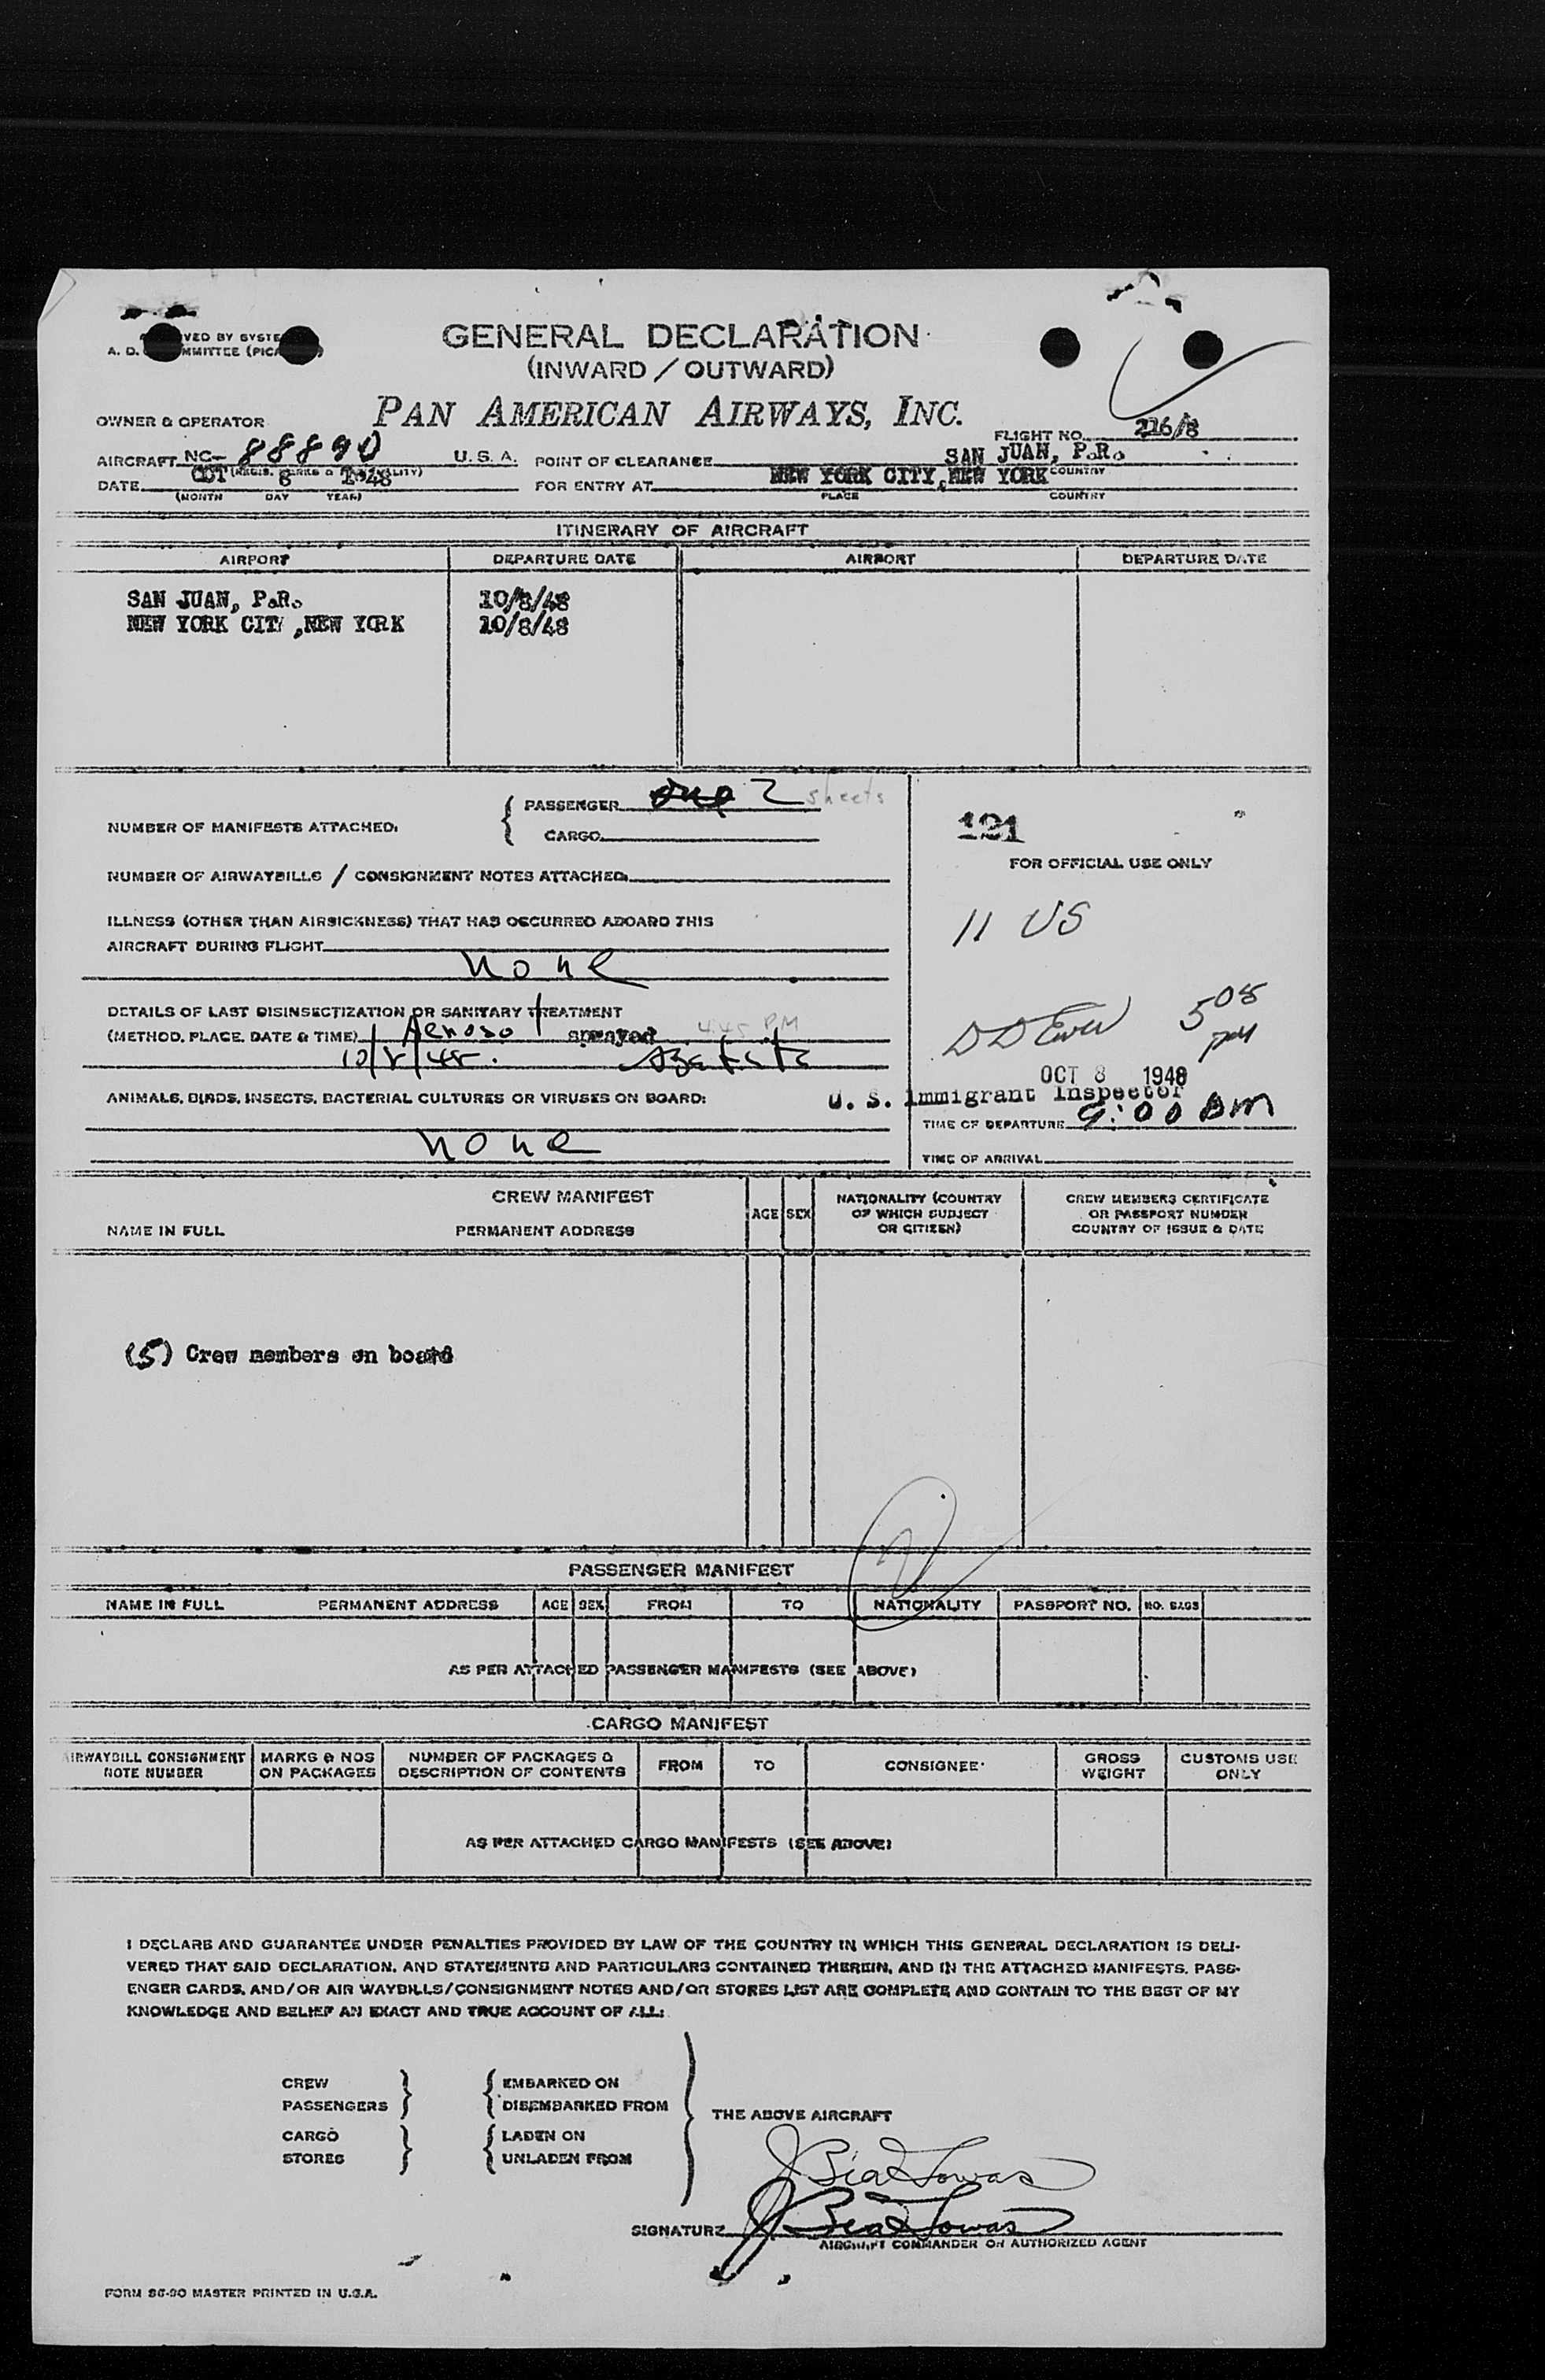 GENERAL DECLARATION
(INWARD / OUTWARD)
PAN AMERICAN AIRWAYS, INC.
OWNER & OPERATOR
FLIGHT NO. 226/8
AIRCRAFT NC- 88890 U.S.A.
POINT OF CLEARANCE SAN JUAN, P.R.
COUNTRY
DATE OCT 8 1948
(MONTH DAY YEAR)
FOR ENTRY AT NEW YORK CITY, NEW YORK
PLACE COUNTRY
ITINERARY OF AIRCRAFT
AIRPORT DEPARTURE DATE AIRPORT DEPARTURE DATE
SAN JUAN, P.R. 10/8/48
NEW YORK CITY, NEW YORK 10/8/48
NUMBER OF MANIFESTS ATTACHED:
PASSENGER one 2 sheets
CARGO
121
FOR OFFICIAL USE ONLY
NUMBER OF AIRWAYBILLS / CONSIGNMENT NOTES ATTACHED
11 US
ILLNESS (OTHER THAN AIRSICKNESS) THAT HAS OCCURRED ABOARD THIS
AIRCRAFT DURING FLIGHT
None
DETAILS OF LAST DISINSECTIZATION OR SANITARY TREATMENT
(METHOD, PLACE, DATE & TIME) Aerosol sprayed 4:45 PM
10/8/48.
5 08 PM
OCT 8 1948
U. S. Immigrant Inspector
ANIMALS, BIRDS, INSECTS, BACTERIAL CULTURES OR VIRUSES ON BOARD:
None
TIME OF DEPARTURE 9:00 AM
TIME OF ARRIVAL
CREW MANIFEST
NAME IN FULL PERMANENT ADDRESS AGE SEX
NATIONALITY (COUNTRY
OF WHICH SUBJECT
OR CITIZEN)
CREW MEMBERS CERTIFICATE
OR PASSPORT NUMBER
COUNTRY OF ISSUE & DATE
(5) Crew members on board
PASSENGER MANIFEST
NAME IN FULL PERMANENT ADDRESS AGE SEX FROM TO NATIONALITY PASSPORT NO. NO. BAGS
AS PER ATTACHED PASSENGER MANIFESTS (SEE ABOVE)
CARGO MANIFEST
AIRWAYBILL CONSIGNMENT
NOTE NUMBER
MARKS & NOS
ON PACKAGES
NUMBER OF PACKAGES &
DESCRIPTION OF CONTENTS
FROM TO CONSIGNEE
GROSS
WEIGHT
CUSTOMS USE
ONLY
AS PER ATTACHED CARGO MANIFESTS (SEE ABOVE)
I DECLARE AND GUARANTEE UNDER PENALTIES PROVIDED BY LAW OF THE COUNTRY IN WHICH THIS GENERAL DECLARATION IS DELI-
VERED THAT SAID DECLARATION, AND STATEMENTS AND PARTICULARS CONTAINED THEREIN, AND IN THE ATTACHED MANIFESTS, PASS-
ENGER CARDS, AND/OR AIR WAYBILLS/CONSIGNMENT NOTES AND/OR STORES LIST ARE COMPLETE AND CONTAIN TO THE BEST OF MY
KNOWLEDGE AND BELIEF AN EXACT AND TRUE ACCOUNT OF ALL:
CREW
PASSENGERS
EMBARKED ON
DISEMBARKED FROM
THE ABOVE AIRCRAFT
CARGO
STORES
LADEN ON
UNLADEN FROM
SIGNATURE
AIRCRAFT COMMANDER OR AUTHORIZED AGENT
FORM 86-90 MASTER PRINTED IN U.S.A.